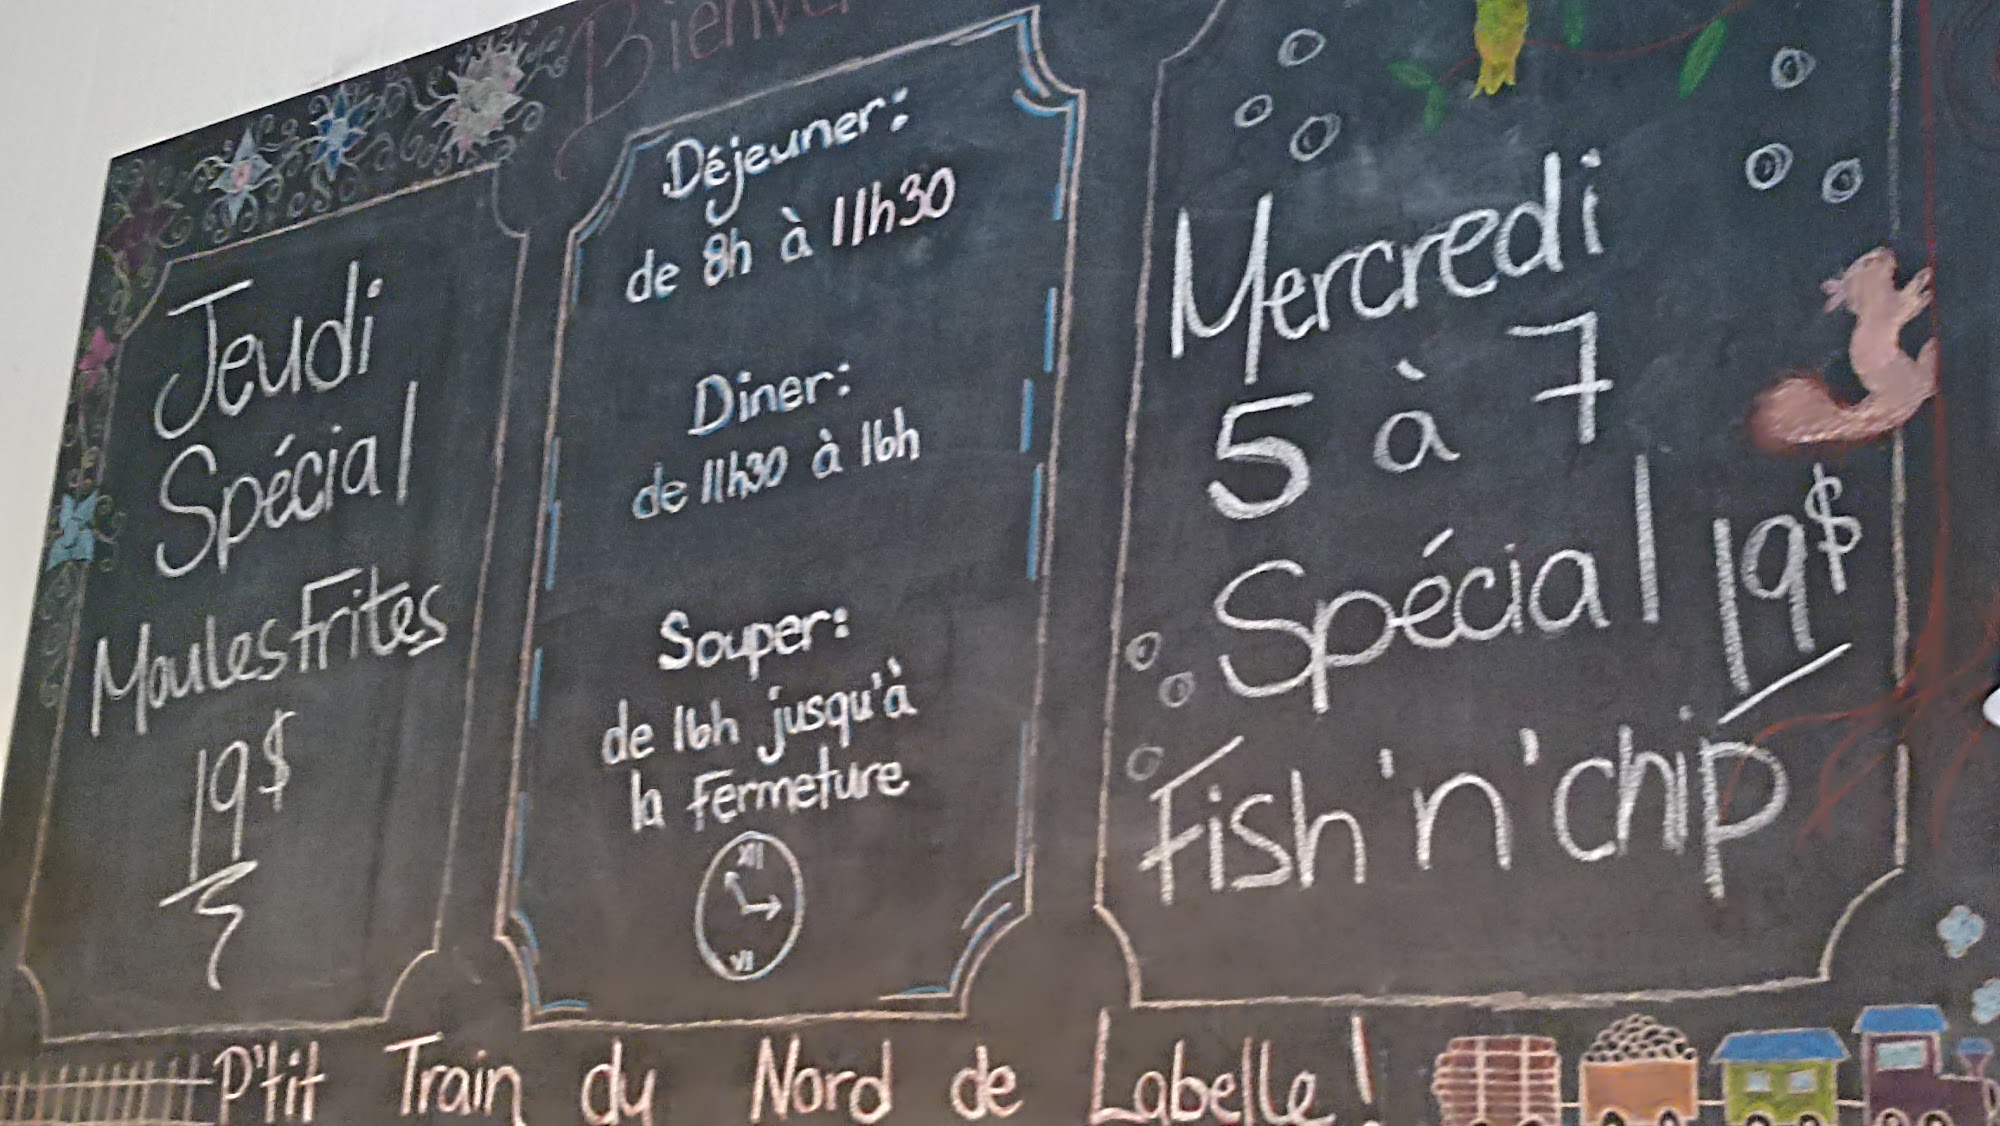 Jeudi
Spécial
Moules Frites
19$
Déjeuner:
de 8h à 11h30
Diner:
de 11h30 à 16h
Souper:
de 16h jusqu'à
la Fermeture
XII
VI
Mercredi
5 à 7
Spécial 19$
Fish 'n' chip
P'tit Train du Nord de Labelle!